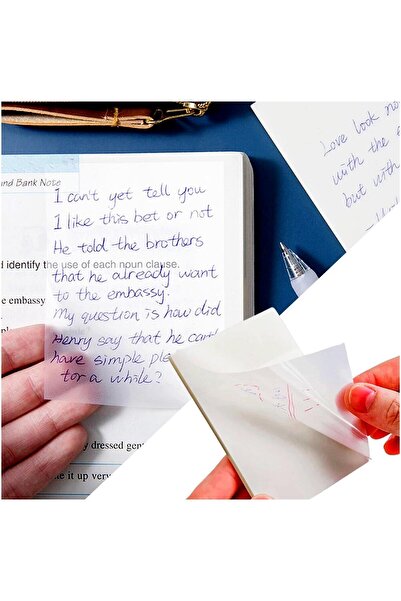 und Bank Note
I can't yet tell you
I like this bet or not
He told the brothers
d identify the use of each noun clause.
that he already want
e embassy
to the embassy.
My question is how did
Henry say that he
have simple
for a while?
y dressed gent
e it up very
Love look no
with the
but with